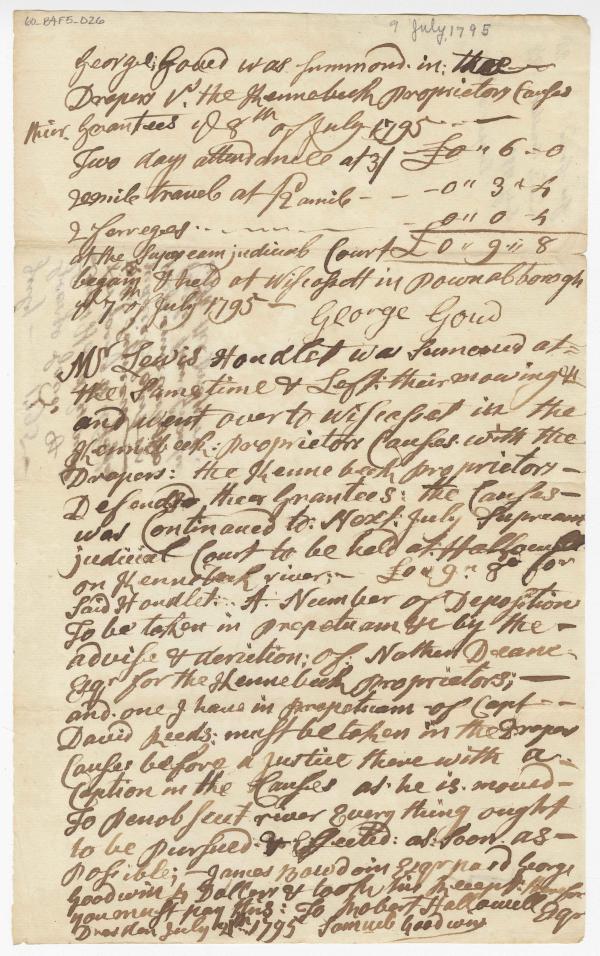 60-84F5-D26
9 July, 1795
George Goud was summond in the
Drapers Vs. the Kennebeck proprietors Causes
their Grantees ye 8th of July 1795
Two days attendance at 3/ £0 " 6 - 0
mile travel at - - 0 " 3 " 4
2 ferreges - - - 0 " 0 - 4
at the Supream judicial Court £0 " 9 " 8
began & held at Wiscassett in Pownalborough
ye 7 of July 1795 -
George Goud
Mr Lewis Houdlet was Sumoned at
the Same time & Left their mowing &c
and went over to Wiscasset in the
Kennebeck proprietors Causes with the
Drapers: the Kennebeck proprietors -
Defends their Grantees: the Causes -
was Continued to Next July Supream
judicial Court to be held at Hallowell
on Kennebeck river: - £0 " 9 " 8 for
Said Houdlet: A Number of Deposition
To be taken in perpetuam &c by the -
advise & deriction; of Nathan Deane
Esqr for the Kennebeck proprietors; -
and one I have in perpetuam of Capt -
David Reeds: must be taken in the Draper
Causes before a justice there with a
Caption in the Causes as he is moved -
To Penobscut river Every thing ought
to be pursued & Effected: as Soon as -
possible; - James Bowdoin Esqr paid George
Goodwin Dollers & took his Receipt
you must pay this: To Robert Hallowell Esqr
Dresden July 1795 Samuel Goodwin